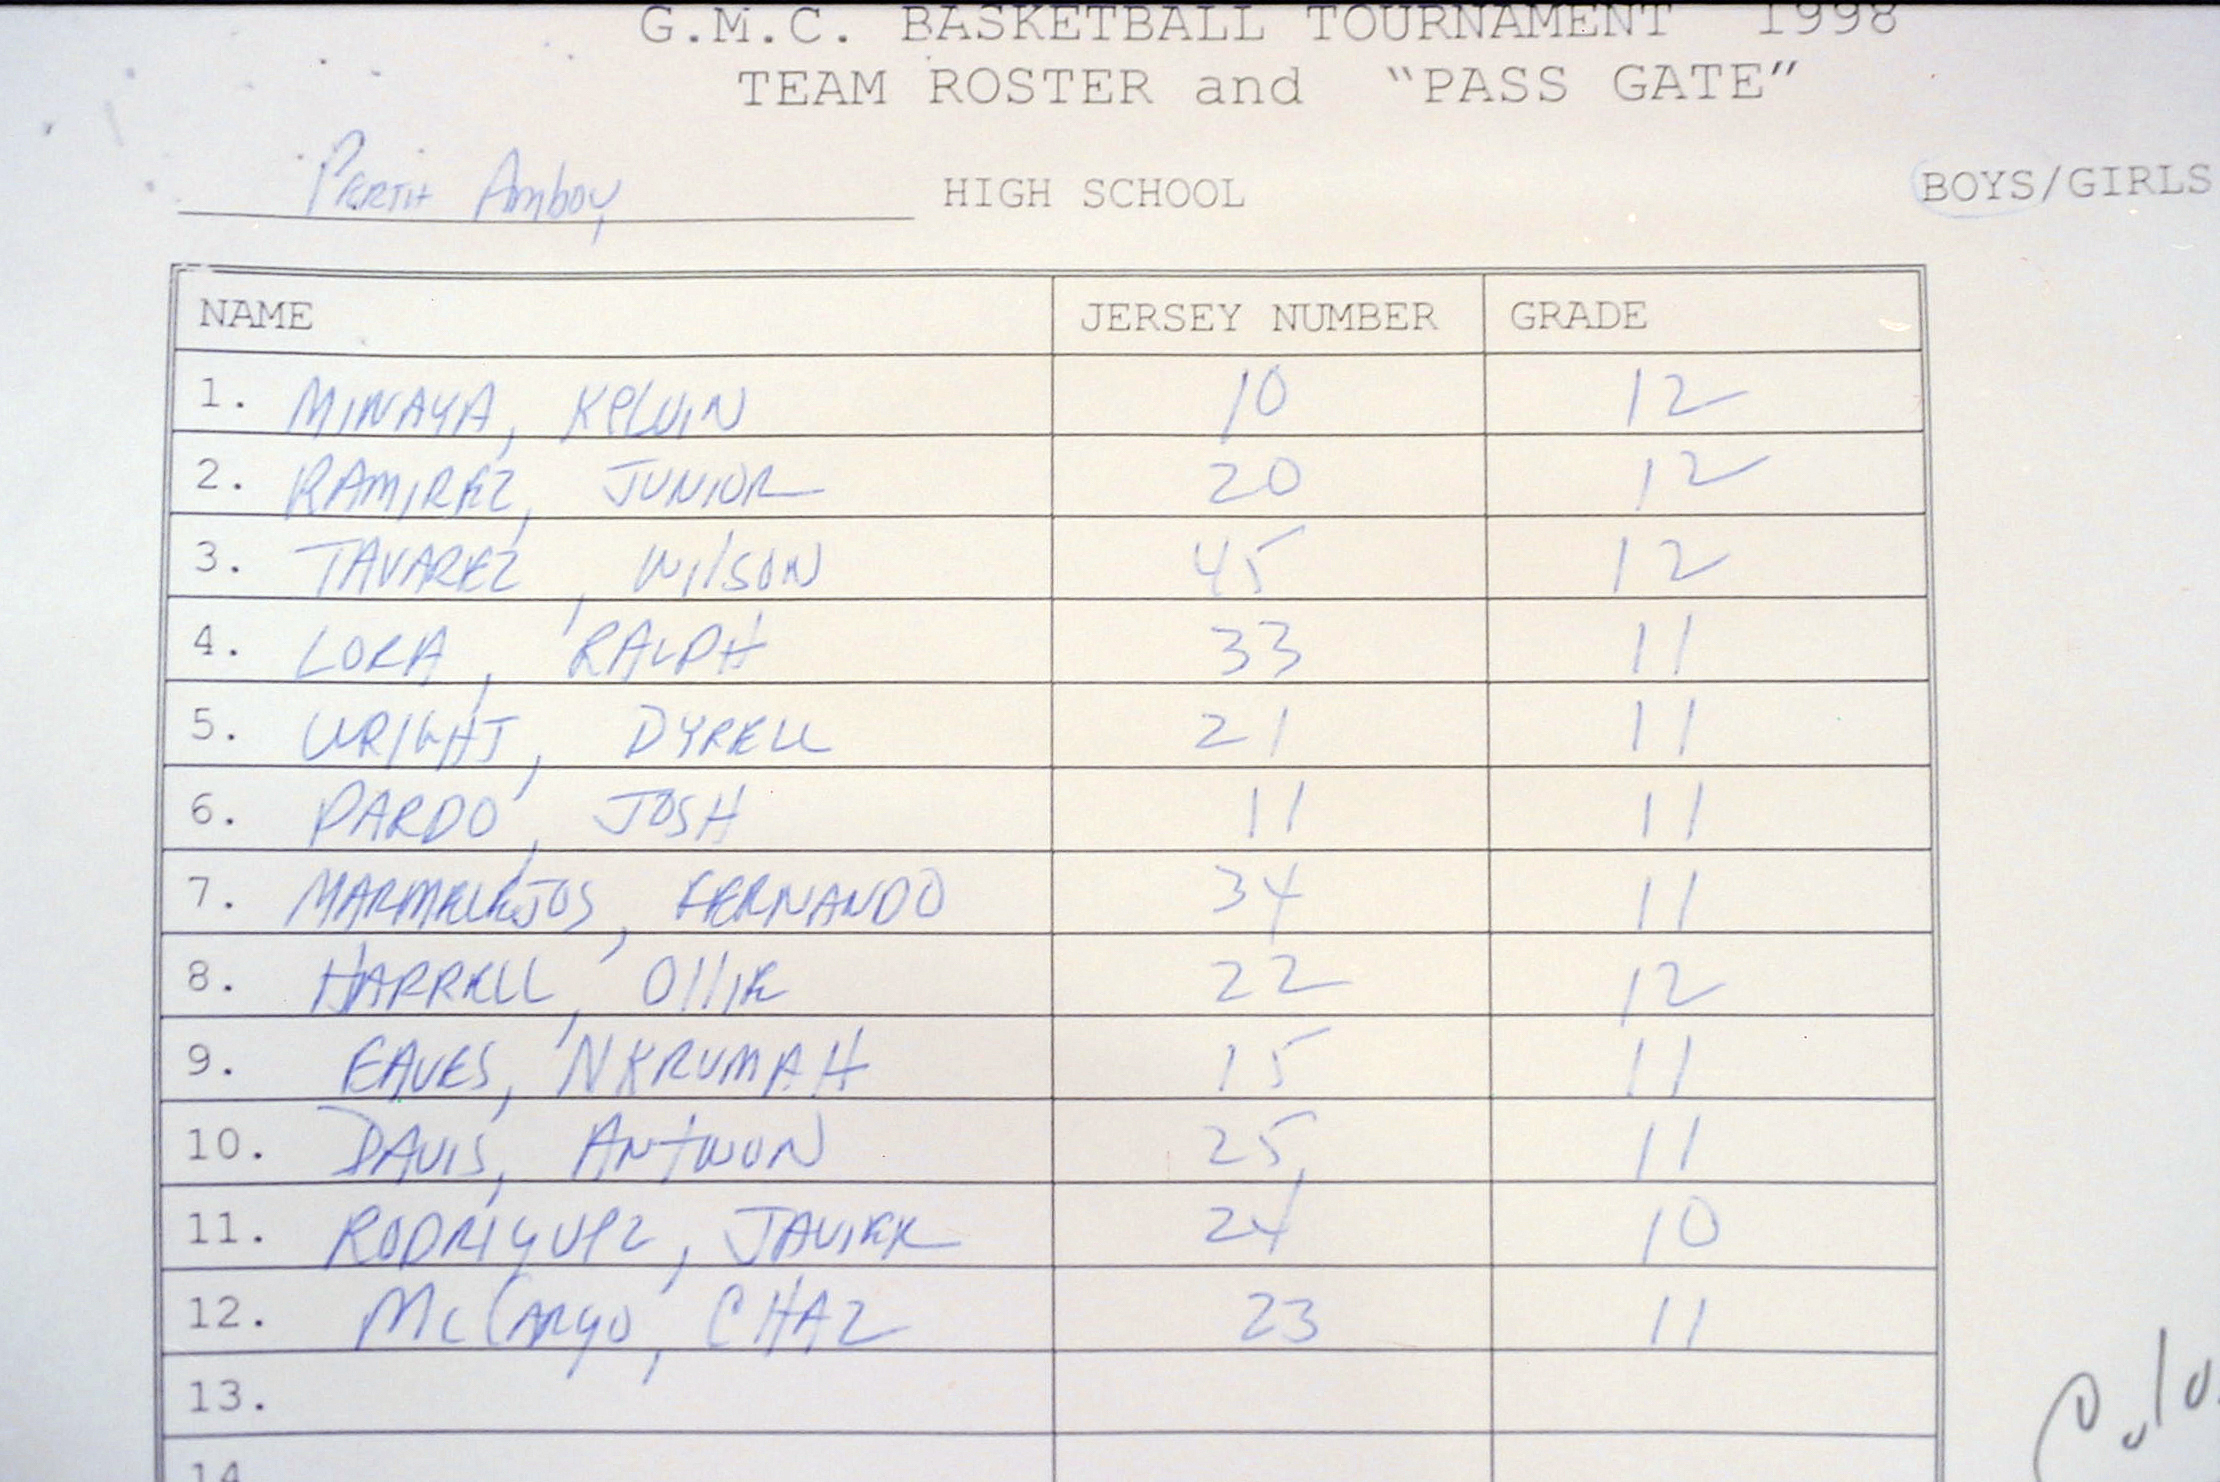 G.M.C. BASKETBALL TOURNAMENT 1998
TEAM ROSTER and "PASS GATE"
Perth Amboy HIGH SCHOOL BOYS/GIRLS
NAME JERSEY NUMBER GRADE
1. MINAYA, KELVIN 10 12
2. RAMIREZ, JUNIOR 20 12
3. TAVAREZ, WILSON 45 12
4. LORA, RALPH 33 11
5. WRIGHT, DYRELL 21 11
6. PARDO, JOSH 11 11
7. MARMELEJOS, FERNANDO 34 11
8. HARRELL, OLLIE 22 12
9. EAVES, NKRUMAH 15 11
10. DAVIS, ANTWON 25 11
11. RODRIGUEZ, JAVIER 24 10
12. McCargo, CHAZ 23 11
13.
14